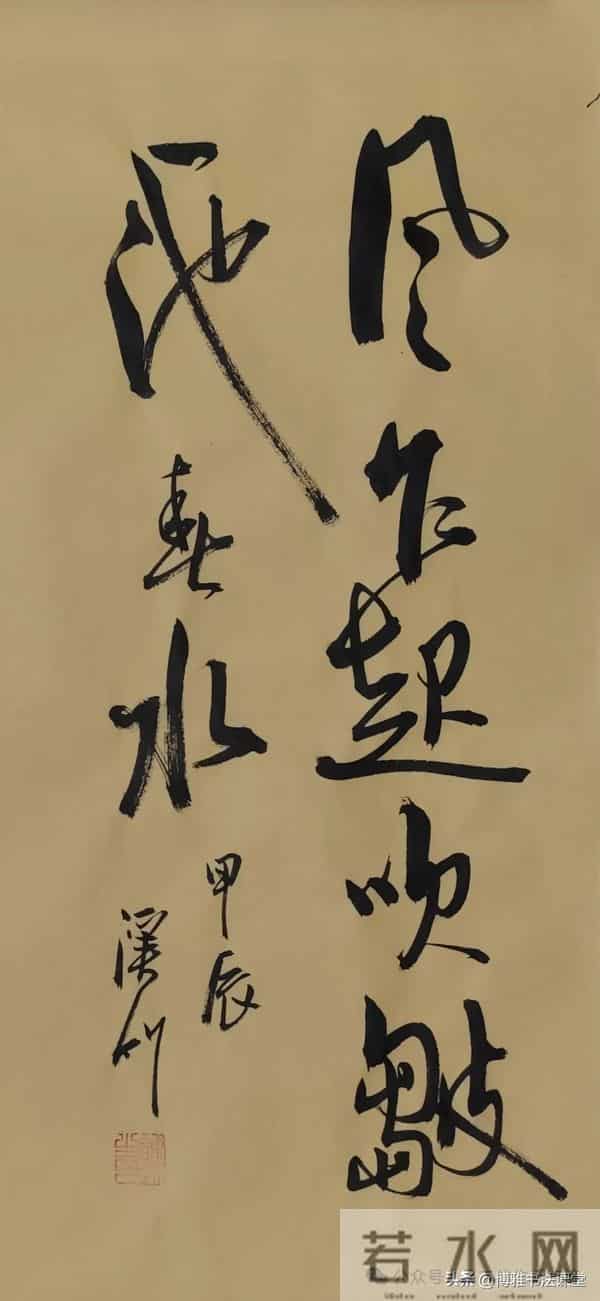 风乍起吹皺
一池春水
甲辰
溪
若水网
公众号
头条 @博雅书法课堂